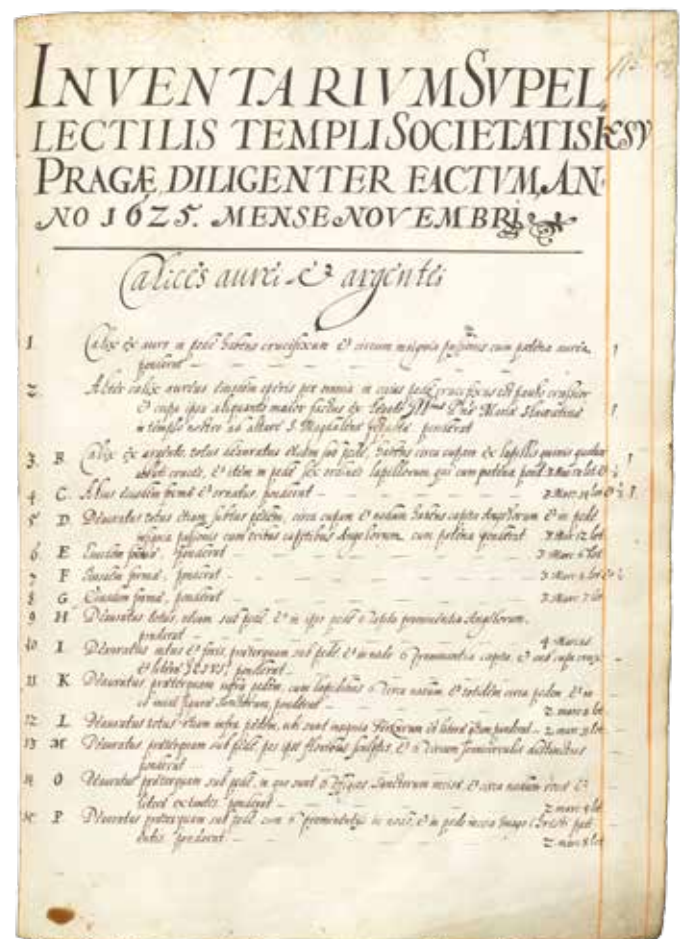 INVENTARIVM SVPEL,
LECTILIS TEMPLI SOCIETATIS IESV
PRAGÆ DILIGENTER FACTVM, AN-
NO 1625. MENSE NOVEMBRI
Calices aurei & argentei
1 Calix ex auro in pede habens crucifixum & circum insignia passionis cum patena aurea
ponderat
2 Alter calix aureus eiusdem operis per omnia in cuius pede crucifixus est paulo crassior
& cupa ipsa aliquanto maior factus ex
in templo nostro ad altare S. Magdalenæ ponderat
3. B. Calix ex argento, totus deauratus etiam sub pede, habens circa cupam ex lapillis
cruces, & item in pede sex ordines lapillorum, qui cum patena pond. 3 Marc 12 lot
4 C. Alius eiusdem formæ & ornatus, ponderat 3 Marc 14 lot
5 D Deauratus totus etiam subtus pedem, circa cupam & nodum habens capita Angelorum & in pede
insignia passionis cum tribus capitibus Angelorum, cum patena ponderat 3 Mar 12 lot
6 E Eiusdem formæ, ponderat 3 Marc 6 lot
7 F Eiusdem formæ, ponderat 3 Marc lot
8 G Eiusdem formæ, ponderat 3 Marc 7 lot
9 H Deauratus totus, etiam sub pede, & in ipso pede 6 capita prominentia Angelorum,
ponderat 4 Marcas
10 I Deauratus intus & foris, præterquam sub pede, & in nodo 6 prominentia capita, &
& literæ IESVS, ponderat
11 K Deauratus præterquam infra pedem, cum lapidibus 6 circa nodum, & totidem circa pedem, & in
eo incisæ figuræ Sanctorum, ponderat 2 marc 2 lot
12 L Deauratus totus etiam infra pedem, ubi sunt insignia ponderat 2 marc lot
13 M Deauratus præterquam sub pede, pes ipse floribus sculptus, & 6 circum semicirculis distinctus
ponderat
14 O Deauratus præterquam sub pede, in quo sunt 6 effigies Sanctorum incisæ, & circa nodum
ponderat 2 marc 8 lot
P Deauratus præterquam sub pede cum 6 prominentijs in nodo, & in pede incisa imago Christi pat
ientis ponderat 2 marc 8 lot